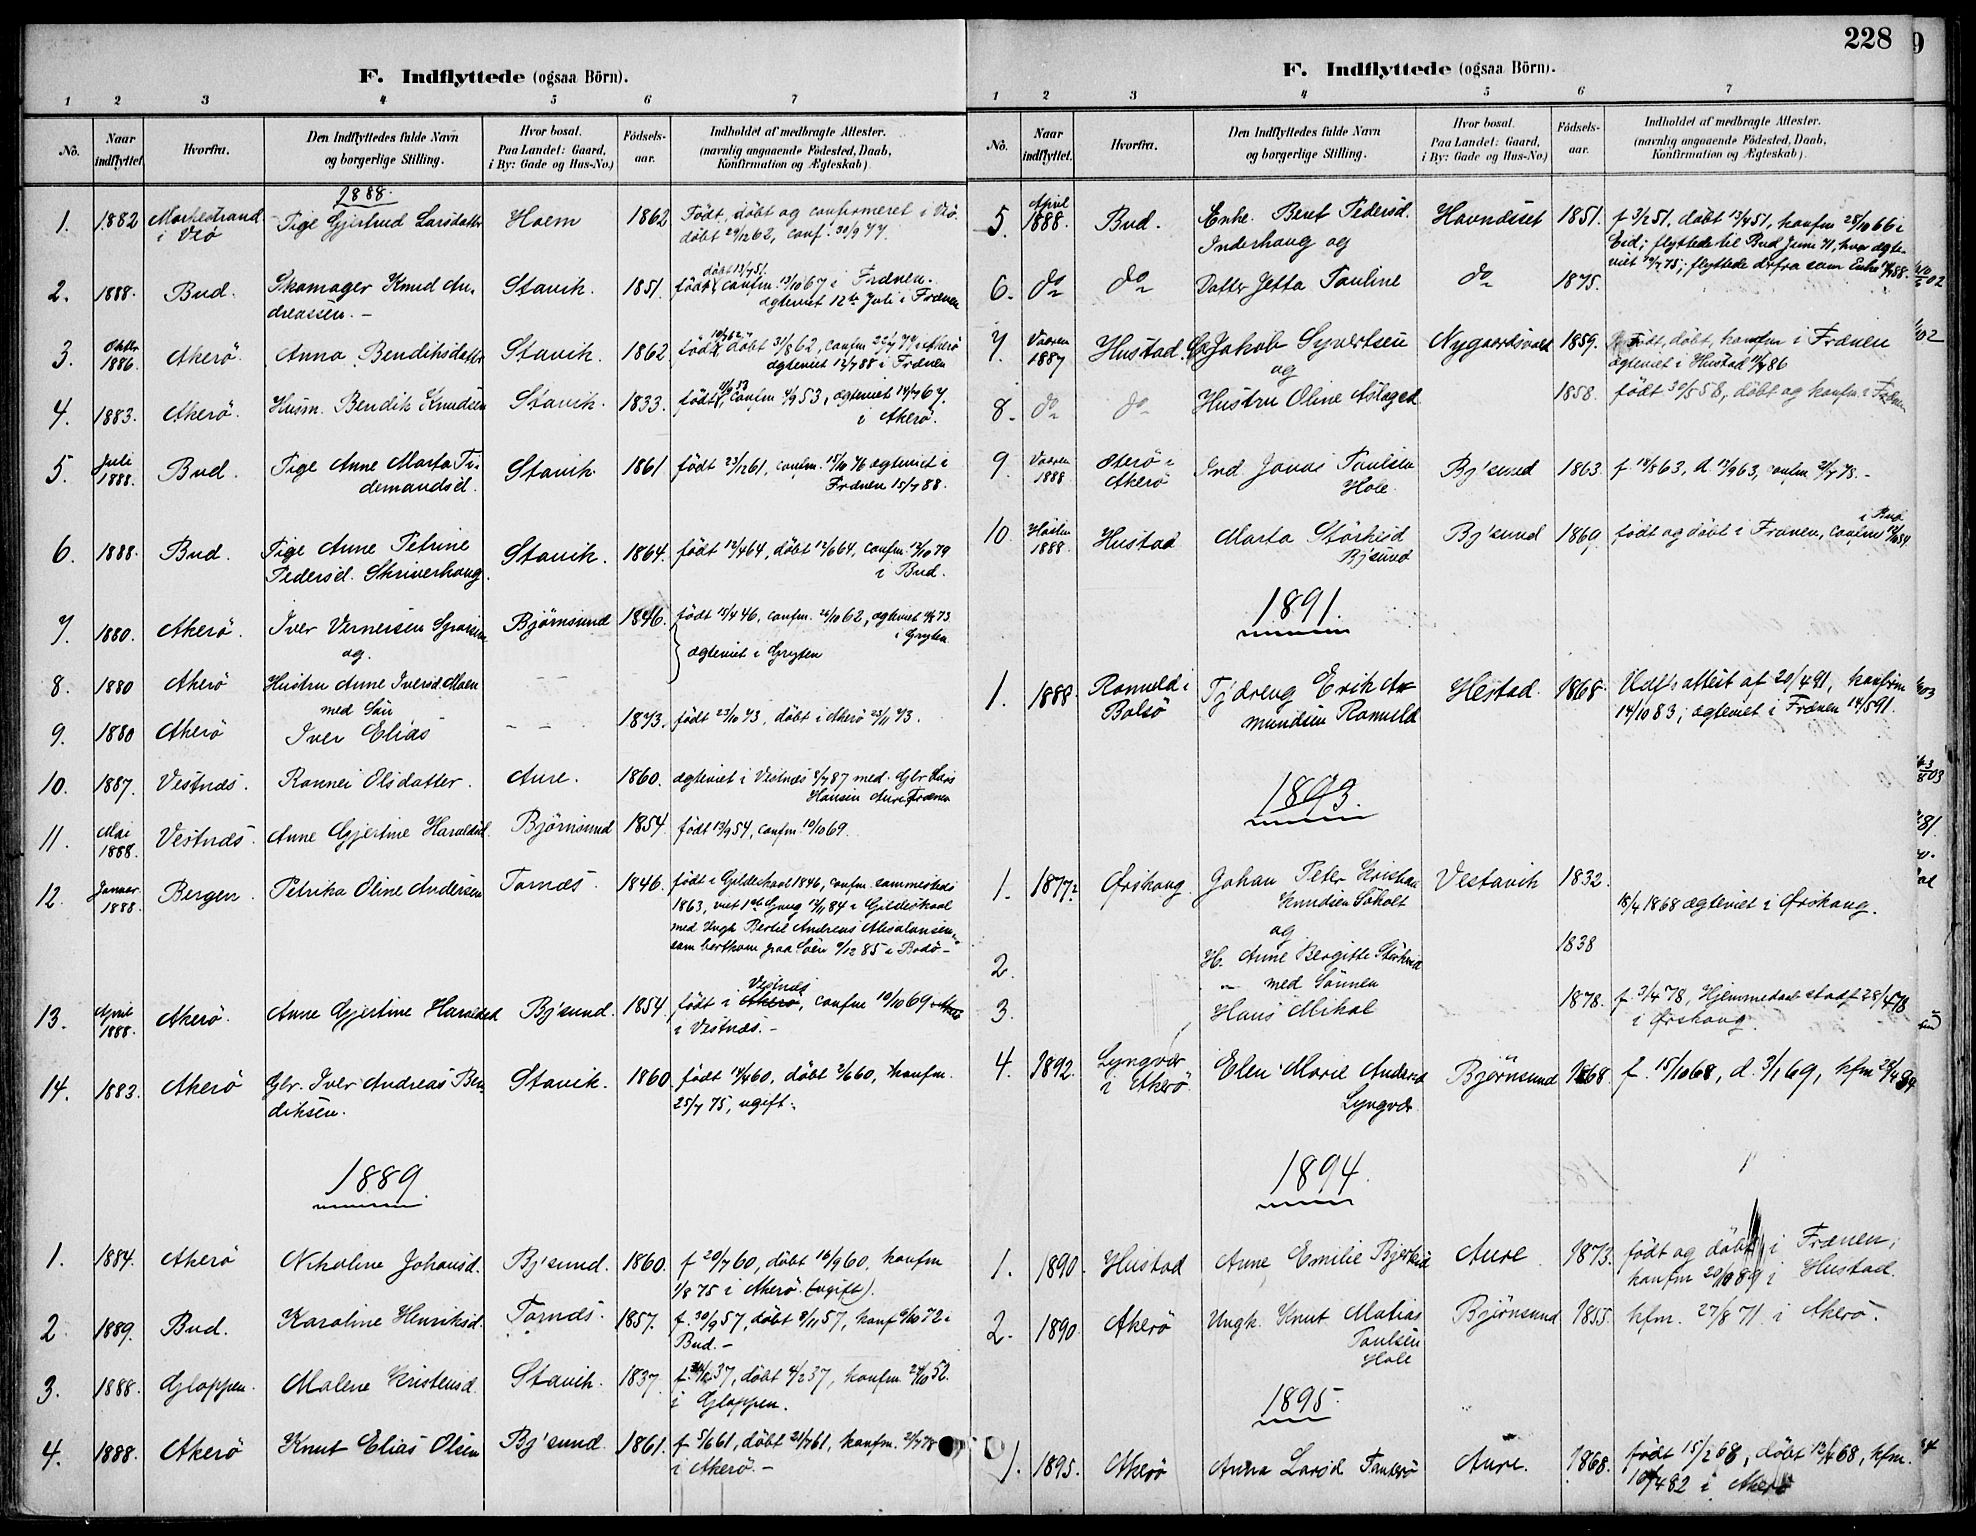 228
F. Indflyttede (ogsaa Börn).
1 2 3 4 5 6 7
No. Naar indflyttet. Hvorfra. Den Indflyttedes fulde Navn og borgerlige Stilling. Hvor bosat. Paa Landet: Gaard, i By: Gade og Hus-No.) Födsels-aar. Indholdet af medbragte Attester. (navnlig angaaende Födested, Daab, Konfirmation og Ægteskab).
1888.
1. 1882 i Vrö Pige Gjertrud Larsdatter Hoem 1862 Født, døbt og confirmeret i Vrö.
døbt 29/12 62, conf. 30/9 77.
2. 1888. Bud. Skomager Knud An- Stavik. 1851. født, confm. 13/10 67 i Frænen.
dreassen. – ægteviet 12te Juli i Frænen
3. 1886. Akerö. Anna Bendiksdatter Stavik. 1862 født, døbt 31/8 62, confm i Akerö
ægteviet 12/7 88 i Frænen
4. 1883. Akerö. Husm. Bendik Knudsen Stavik. 1833. født, confm 53, ægteviet 67.
i Akerö.
5. Juli 1888. Bud. Pige Anne Marta Ti- Stavik. 1861 født 23/12 61, confm. 15/10 76 ægteviet i
demandsd. Frænen 15/7 88.
6. 1888. Bud. Pige Anne Petrine Stavik. 1864. født 12/4 64, døbt 12/6 64, confm. 12/10 79
Pedersd. Skriverhaug. i Bud.
7. 1880. Akerö. Iver Vernersen Bjørnsund 1846. født 15/4 46, confm. 62, ægteviet 73
og. i Gryten
ægteviet i Gryten
8. 1880 Akerö Hustru Anne Iversd. Moen – –
med Søn
9. 1880 Akerö Iver Elias – – – 1873. født 23/10 73, døbt i Akerö 23/11 73.
10. 1887. Vestnæs. Rannei Olsdatter. Aure. 1860. ægteviet i Vestnæs 87 med Gbr Lars
Hansen Aure, Frænen
11. Mai 1888. Vestnæs. Anne Gjertine Haraldsd. Björnsund 1854 født 13/9 54, confm. 10/10 69.
12. Januar 1888. Bergen. Petrika Oline Andersen Tornæs. 1846. født i Gildeskaal 1846, confm. sammesteds
1863, viet 1ste Gang 84 i Gildeskaal
med Ungk. Bertel Andreas Absalonsen,
som bortkom paa Søen 85 i Bodö –
13. April 1888. Akerö. Anne Gjertine Haraldsd Bj'sund. 1854. født i Akerö, Vestnæs confm 10/10 69
i Vestnæs. –
14. 1883. Akerö Gbr. Iver Andreas Ben Stavik. 1860. født 14/4 60, døbt 60, konfm.
diksen. 25/7 75, ugift.
1889.
1. 1884. Akerö Nikoline Johansd. Bj'sund. 1860. f 20/7 60, døbt 16/9 60, konfm
1/8 75 i Akerö (ugift).
2. 1889. Bud. Karoline Henriksd. Tornæs. 1857. f. 30/9 57, døbt 8/11 57, konf 6/10 72 i
Bud. –
3. 1888. Gloppen. Malene Kristensd. Stavik. 1837. f. 37, døbt 4/2 37, konfm. 24/10 52.
i Gloppen.
4. 1888. Akerö Knut Elias Olsen Bj'sund. 1861. f 5/6 61, døbt 21/7 61, konfm. 78
i Akerö. –
F. Indflyttede (ogsaa Börn).
1 2 3 4 5 6 7
No. Naar indflyttet. Hvorfra. Den Indflyttedes fulde Navn og borgerlige Stilling. Hvor bosat. Paa Landet: Gaard, i By: Gade og Hus-No.) Födsels-aar. Indholdet af medbragte Attester. (navnlig angaaende Födested, Daab, Konfirmation og Ægteskab).
5. April 1888. Bud. Enke. Beret Pedersd. Havnæset 1851. f 3/2 51, døbt 13/4 51, konfm 28/10 66 i
Inderhaug og Eid; flyttede til Bud Juni 71, hvor ægte-
viet 75; flyttede derfra som Enke 88.
6. do do Datter Jetta Pauline do 1875.
7. Vaaren 1887 Hustad Jakob Syvertsen Nygaardsvald 1859. Født, døbt, konfm i Frænen
og ægteviet i Hustad 86
8. do do Hustru Oline Aslagsd 1858. født 30/5 58, døbt og konfm. i Frænen
9. Vaaren 1888 i Akerö Ind. Jonas Paulsen Bj'sund 1863. f 14/8 63, d 13/9 63, confm 78. –
Hole.
10. Høsten 1888. Hustad Marta Störkisd Bj'sund 1869. født og døbt i Frænen, confm 84
Bj'sund i Bud
1891.
1. 1888. Romuld i Tj'dreng Erik A Hestad. 1868. Udfl. attest af 20/4 91, konfirm
Bolsö mundsen Romuld 14/10 83; ægteviet i Frænen 14/5 91.
1893.
1. 1877? Ørskoug. Johan Peter Kristian Vestavik 1832.
Knudsen Søholt 18/4 1868 ægteviet i Ørskoug.
og
2. H. Anne Bergitte Störksd 1838
" med Sønnen
3. Hans Mikal 1878. f. 3/4 78, Hjemmedaab stadf 28/4 78
i Ørskoug.
4. 1892. Lyngvær Elen Marie Andersd Björnsund 1868. f. 15/10 68, d. 3/1 69, kfm
i Akerö Lyngvær
1894.
1. 1890. Hustad Anne Emilie Aure 1873. født og døbt i Frænen;
konfm 20/10 89 i Hustad.
2. 1890. Akerö Ungk. Knut Matias Björnsund 1855. kfm. 27/8 71 i Akerö.
Paulsen
Hole
1895.
1. 1895. Akerö Anna Larsd Tauterö Aure. 1868. født 15/2 68, døbt 12/4 68, kfm.
82 i Akerö